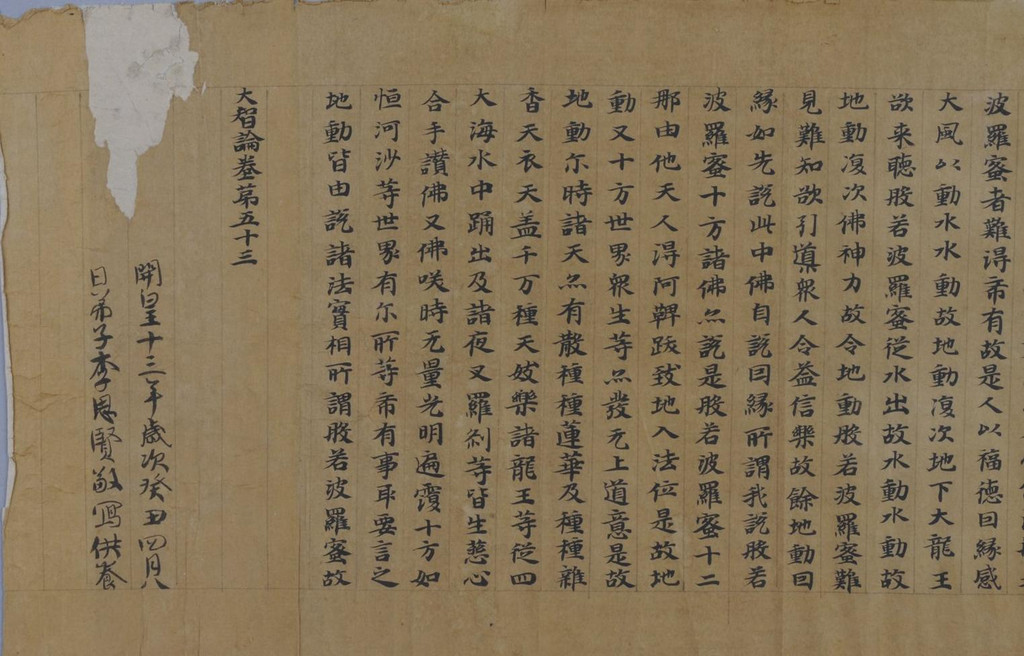 波羅蜜者難得希有故是人以福德因緣感
大風以動水水動故地動復次地下大龍王
欲来聽般若波羅蜜從水出故水動水動故
地動復次佛神力故令地動般若波羅蜜難
見難知欲引導衆人令益信樂故餘地動因
緣如先說此中佛自說因緣所謂我說般若
波羅蜜十方諸佛亦說是般若波羅蜜十二
那由他天人得阿鞞跋致地入法位是故地
動又十方世界衆生等亦發无上道意是故
地動尓時諸天亦有散種種蓮華及種種雜
香天衣天盖千万種天妓樂諸龍王等從四
大海水中踊出及諸夜叉羅剎等皆生慈心
合手讚佛又佛咲時无量光明遍覆十方如
恒河沙等世界有尓所等希有事取要言之
地動皆由說諸法實相所謂般若波羅蜜故
大智論卷苐五十三
開皇十三年歲次癸丑四月八
日弟子李思賢敬寫供養